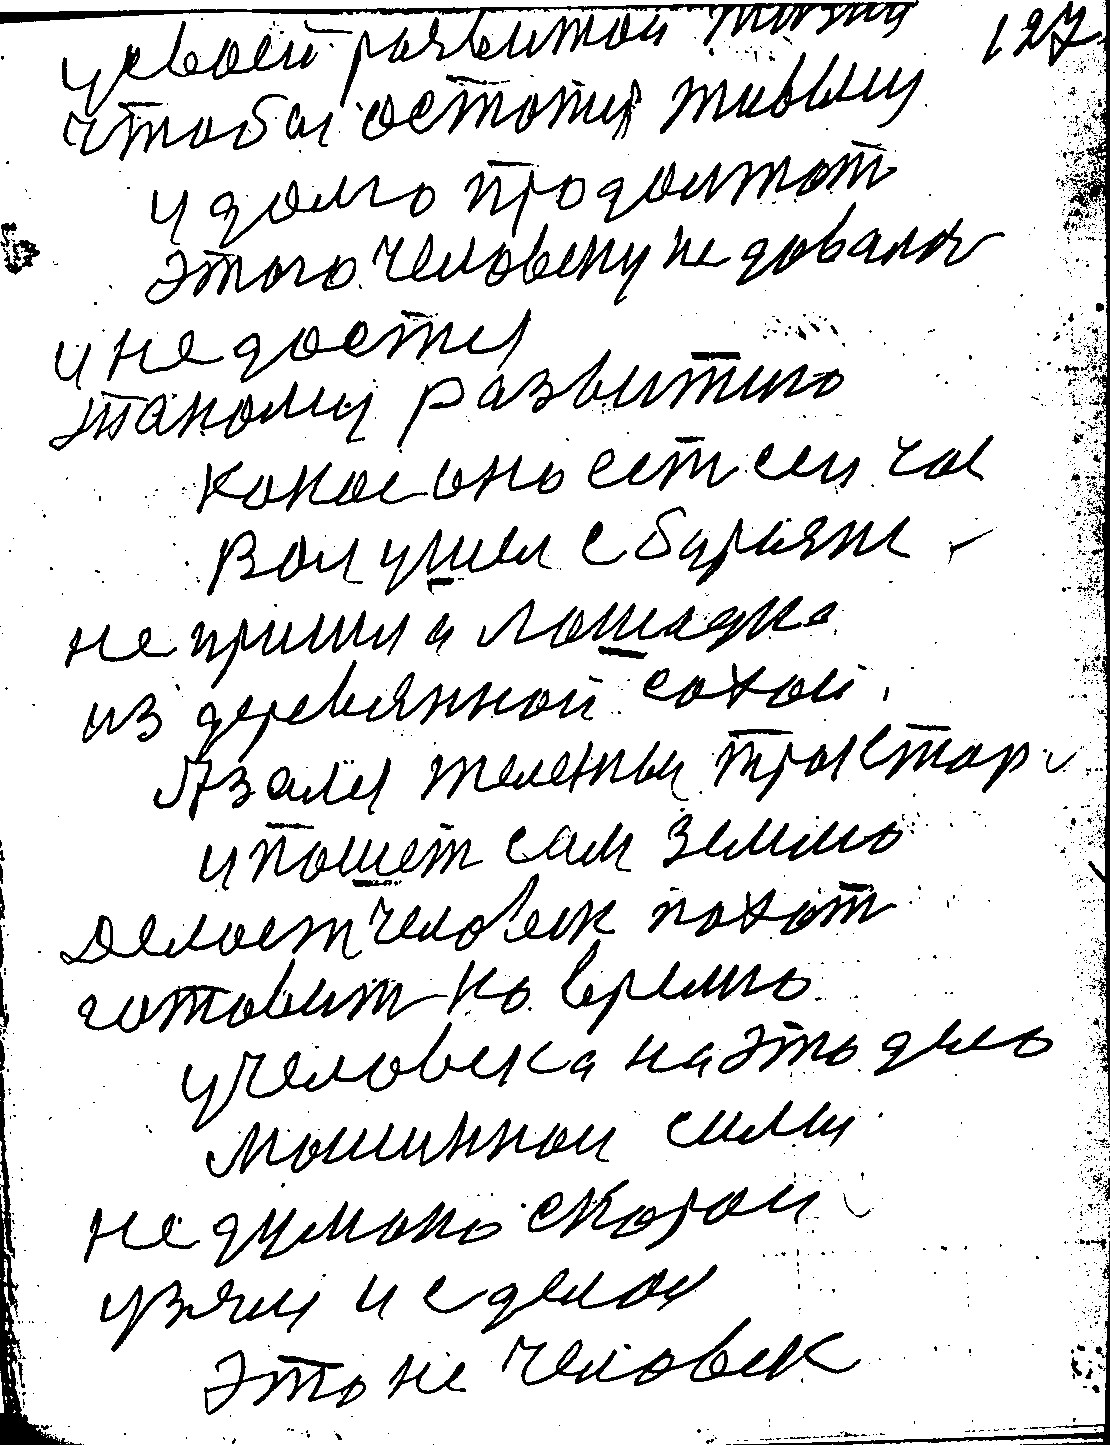 127
у своей развитой жизни
чтобы остотся живым
и долго продолжат
этого человеку не довалос
и не достиг
такому развитию
какое оно ест сейчас
Вол ушел с бурьяне
не пришла лошадка
из деревянной сохой.
А взялся железный трактор
и пошет сам землю
делает человек пахат
готовит ко времю
у человека на это дело
мошинной силы
не думоно скорой
узяли и сделол
это не человек